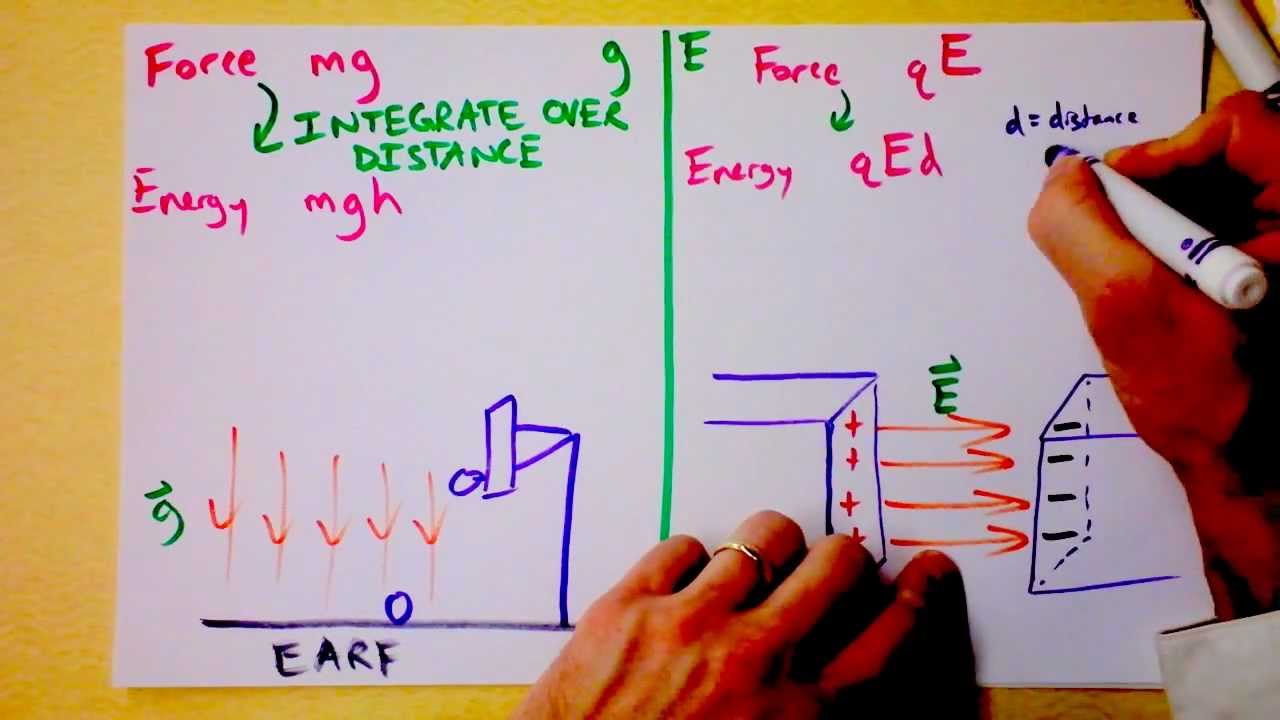 Force mg g
INTEGRATE OVER
DISTANCE
Energy mgh
g
EARF
E Force qE
d = distance
Energy qEd
E
+
+
+
+
−
−
−
−